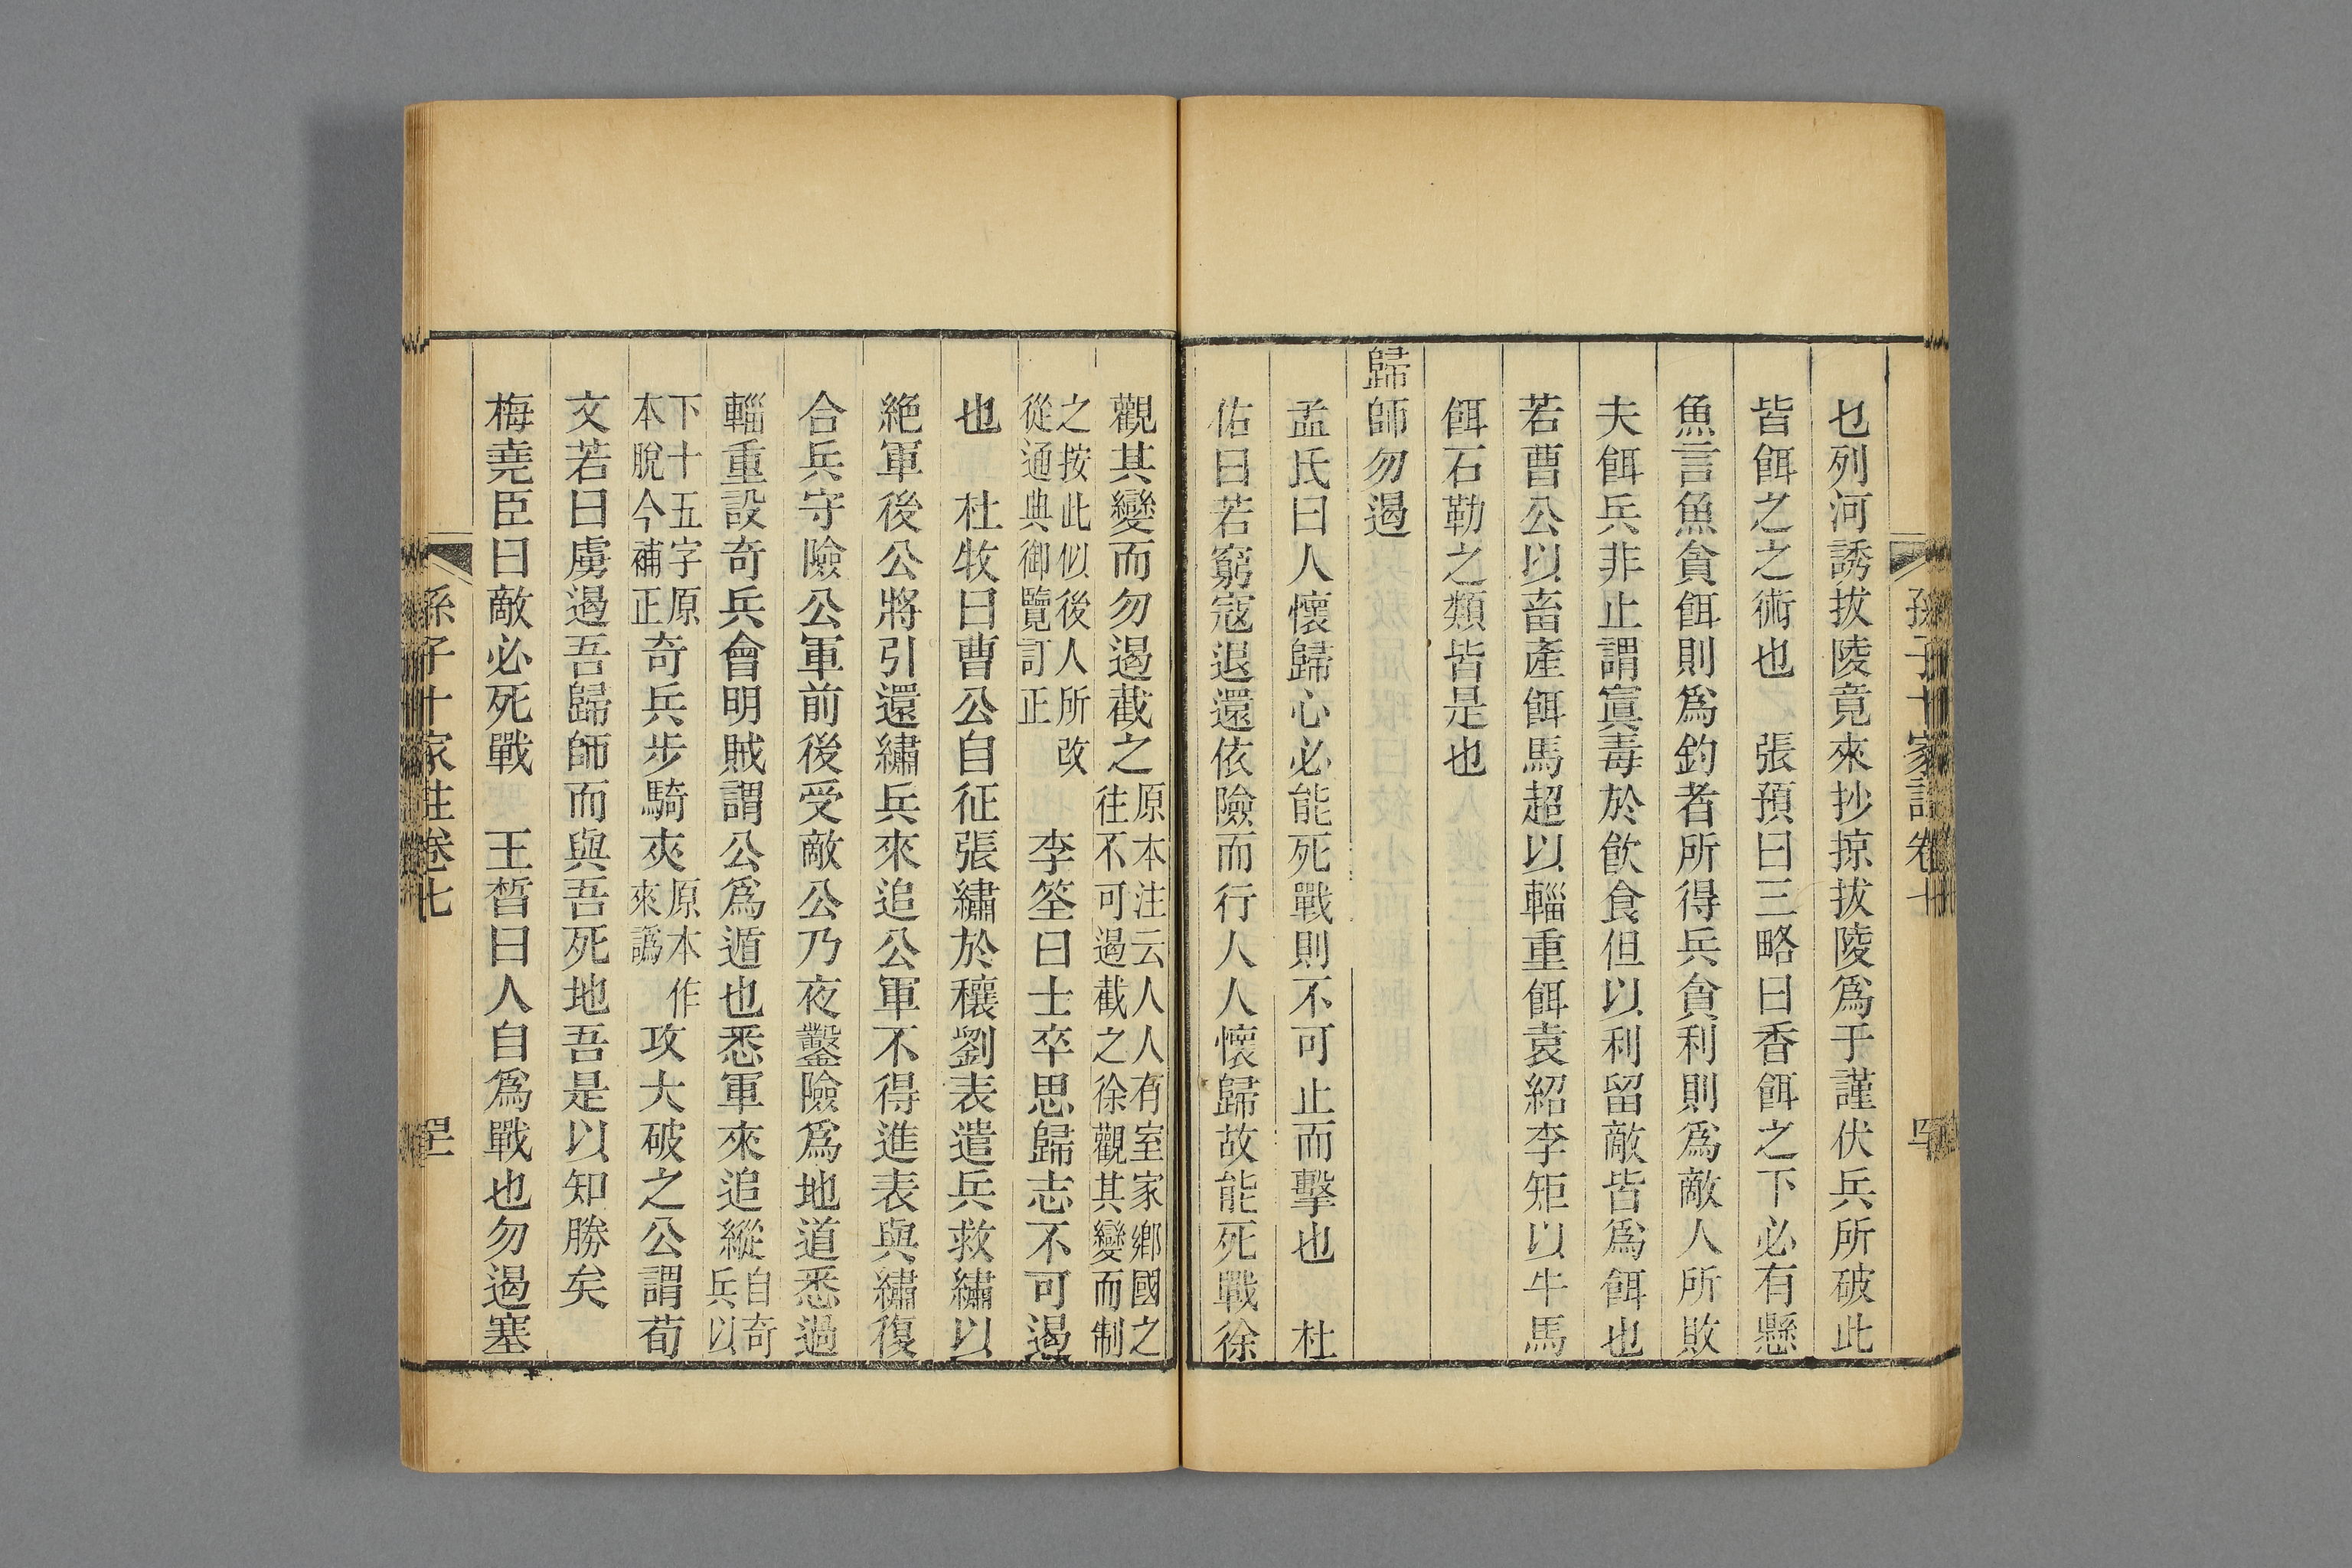 孫子十家註卷七
也列河誘拔陵竟來抄掠拔陵爲于謹伏兵所破此
皆餌之之術也　張預曰三略曰香餌之下必有懸
魚言魚貪餌則爲釣者所得兵貪利則爲敵人所敗
夫餌兵非止謂寘毒於飲食但以利留敵皆爲餌也
若曹公以畜產餌馬超以輜重餌袁紹李矩以牛馬
餌石勒之類皆是也
歸師勿遏
孟氏曰人懷歸心必能死戰則不可止而擊也　杜
佑曰若窮寇退還依險而行人人懷歸故能死戰徐
觀其變而勿遏截之原本注云人人有室家鄉國之往不可遏截之徐觀其變而制
之按此似後人所改從通典御覽訂正　李筌曰士卒思歸志不可遏
也　杜牧曰曹公自征張繡於穰劉表遣兵救繡以
絕軍後公將引還繡兵來追公軍不得進表與繡復
合兵守險公軍前後受敵公乃夜鑿險爲地道悉過
輜重設奇兵會明賊謂公爲遁也悉軍來追縱自奇兵以
下十五字原本脫今補正奇兵步騎夾原本作來譌攻大破之公謂荀
文若曰虜遏吾歸師而與吾死地吾是以知勝矣
梅堯臣曰敵必死戰　王晳曰人自爲戰也勿遏塞
孫子十家註卷七